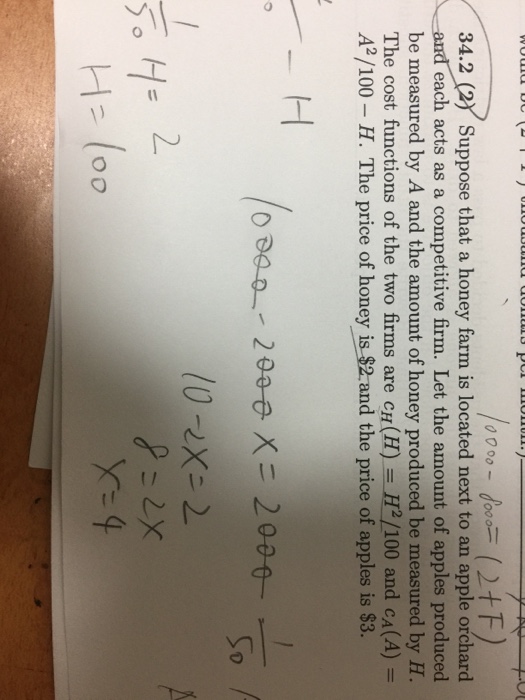 10000 - 8000 = (2+F)
34.2 (2) Suppose that a honey farm is located next to an apple orchard
and each acts as a competitive firm. Let the amount of apples produced
be measured by A and the amount of honey produced be measured by H.
The cost functions of the two firms are cH(H) = H²/100 and cA(A) =
A²/100 − H. The price of honey is $2 and the price of apples is $3.
- H
10000 - 2000x = 2000
1/50
10 - 2x = 2
1/50 H = 2
8 = 2x
H = 100
x = 4